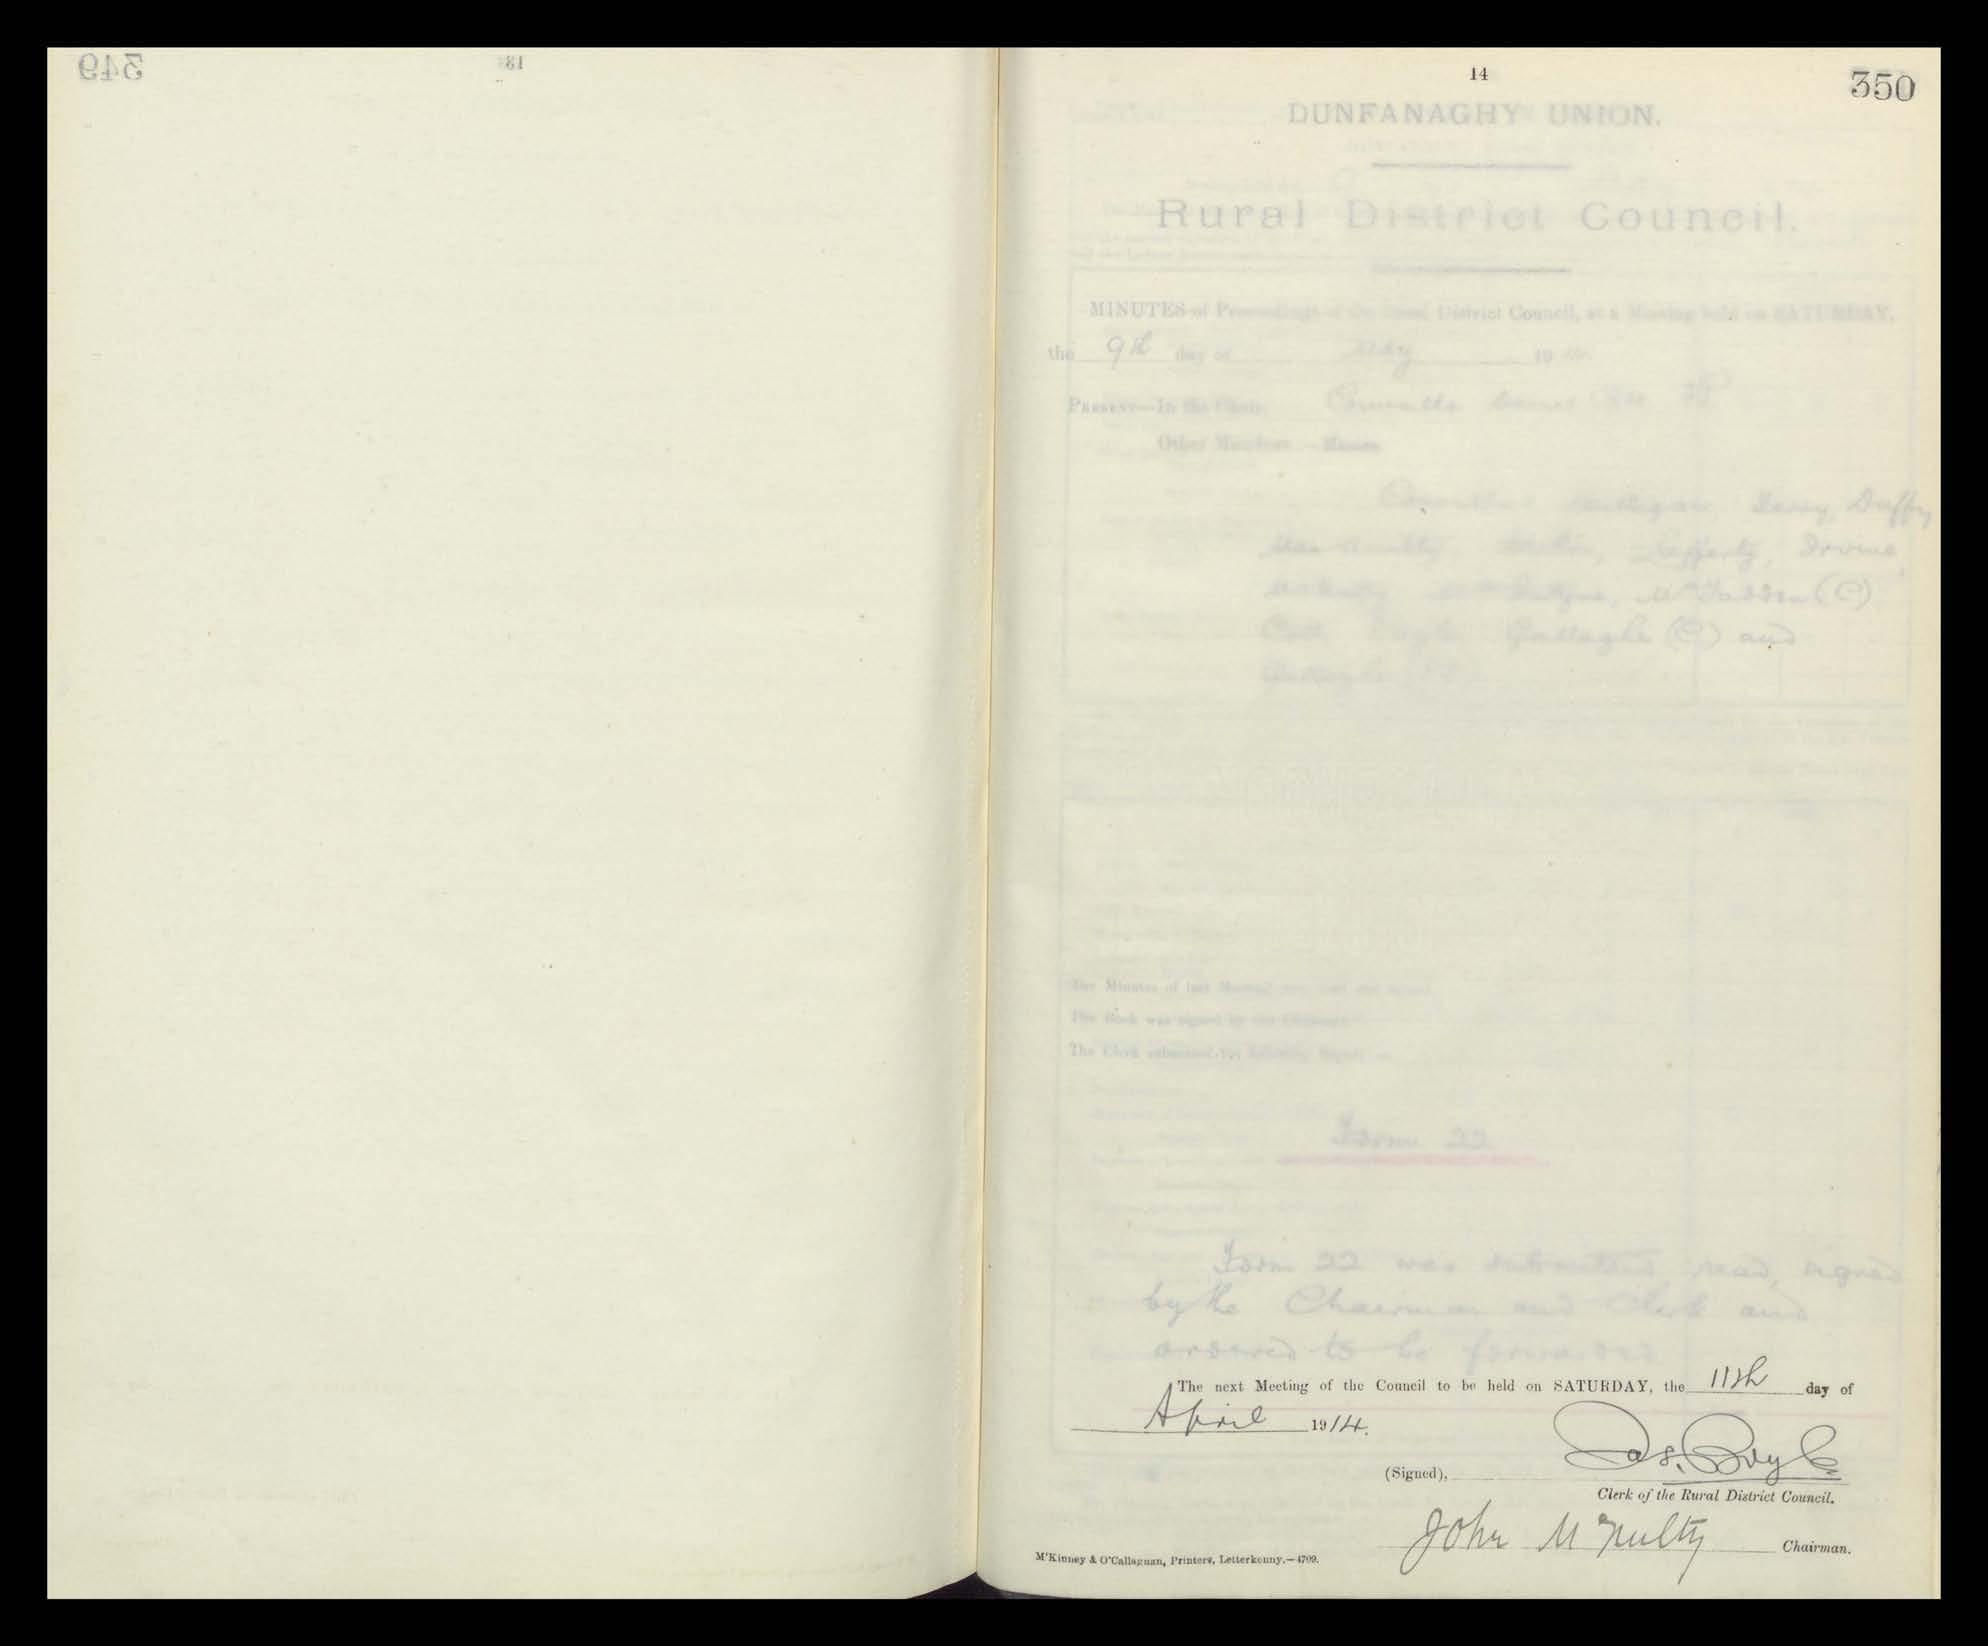 349
13
14
350
DUNFANAGHY UNION.
Rural District Council.
MINUTES of Proceedings of the Rural District Council, at a Meeting held on SATURDAY,
the 9th day of May 19
PRESENT—In the Chair, James
Other Members—Messrs.
Ferry, Duffy
Lafferty, Irvine,
McFadden (C)
Coll Boyle Gallagher (C) and
Gallagher
The Minutes of last Meeting were read and signed.
The Book was signed by the Chairman.
The Clerk submitted the following Report :—
Form 22
Form 22 was submitted read, signed
by the Chairman and Clerk and
ordered to be forwarded
The next Meeting of the Council to be held on SATURDAY, the 11th day of
April 1914.
(Signed), Jas. Boyle
Clerk of the Rural District Council.
John McNulty Chairman.
M'Kinney & O'Callaghan, Printers, Letterkenny.—4709.